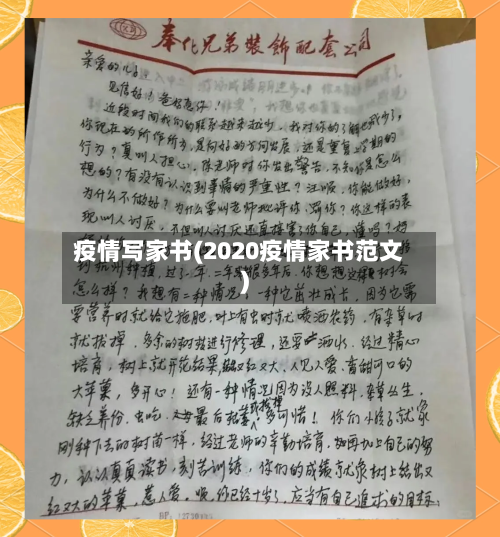 奉化兄弟装飾配套公司
亲爱的儿子
见信好！爸妈想你！
近段时间我们的联系越来越少，我对你的了解也越少了，
你现在的所作所为，是向好的方向发展，还是重复学期的
行为？真叫人担心，陈老师对你发出警告，不知你是怎么
想的？有没有认识到事情的严重性？汪顺，你能做好，
为什么不做好？为什么要叫老师批评
现叫人讨厌，不但叫人讨厌还直接害了你自己，懂吗？
疫情写家书(2020疫情家书范文
)
怎么样？我想有二种情况，一种它茁壮成长，因为它需
要营养时就给它施肥，叶上有虫时就喷洒农药，有杂草时
就拔掉，多余的树枝进行修理，还要洒水，经过精心
培育，树上就开花结果，又红又大，人见人爱，香甜可口的
大苹果，多开心！还有一种情况因为没人照料，杂草丛生，
缺乏养份，虫吃，最后枯萎或拔掉多可惜！你们小孩子就象
刚种下去的树苗一样，经过老师的辛勤培育，加上自己的努
力，认认真真读书，刻苦训练，你们的成绩就象树上结出又
红又大的苹果，惹人爱。顺，你已经十岁了，应当有自己追求的目标，